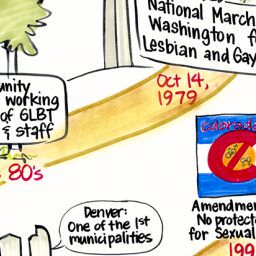 National March
Washington f
Lesbian and Gay
Oct 14,
1979
unity
working
of GLBT
& staff
80's
Colorado
Amendmen
No protec
for Sexual
199
Denver:
One of the 1st
municipalities